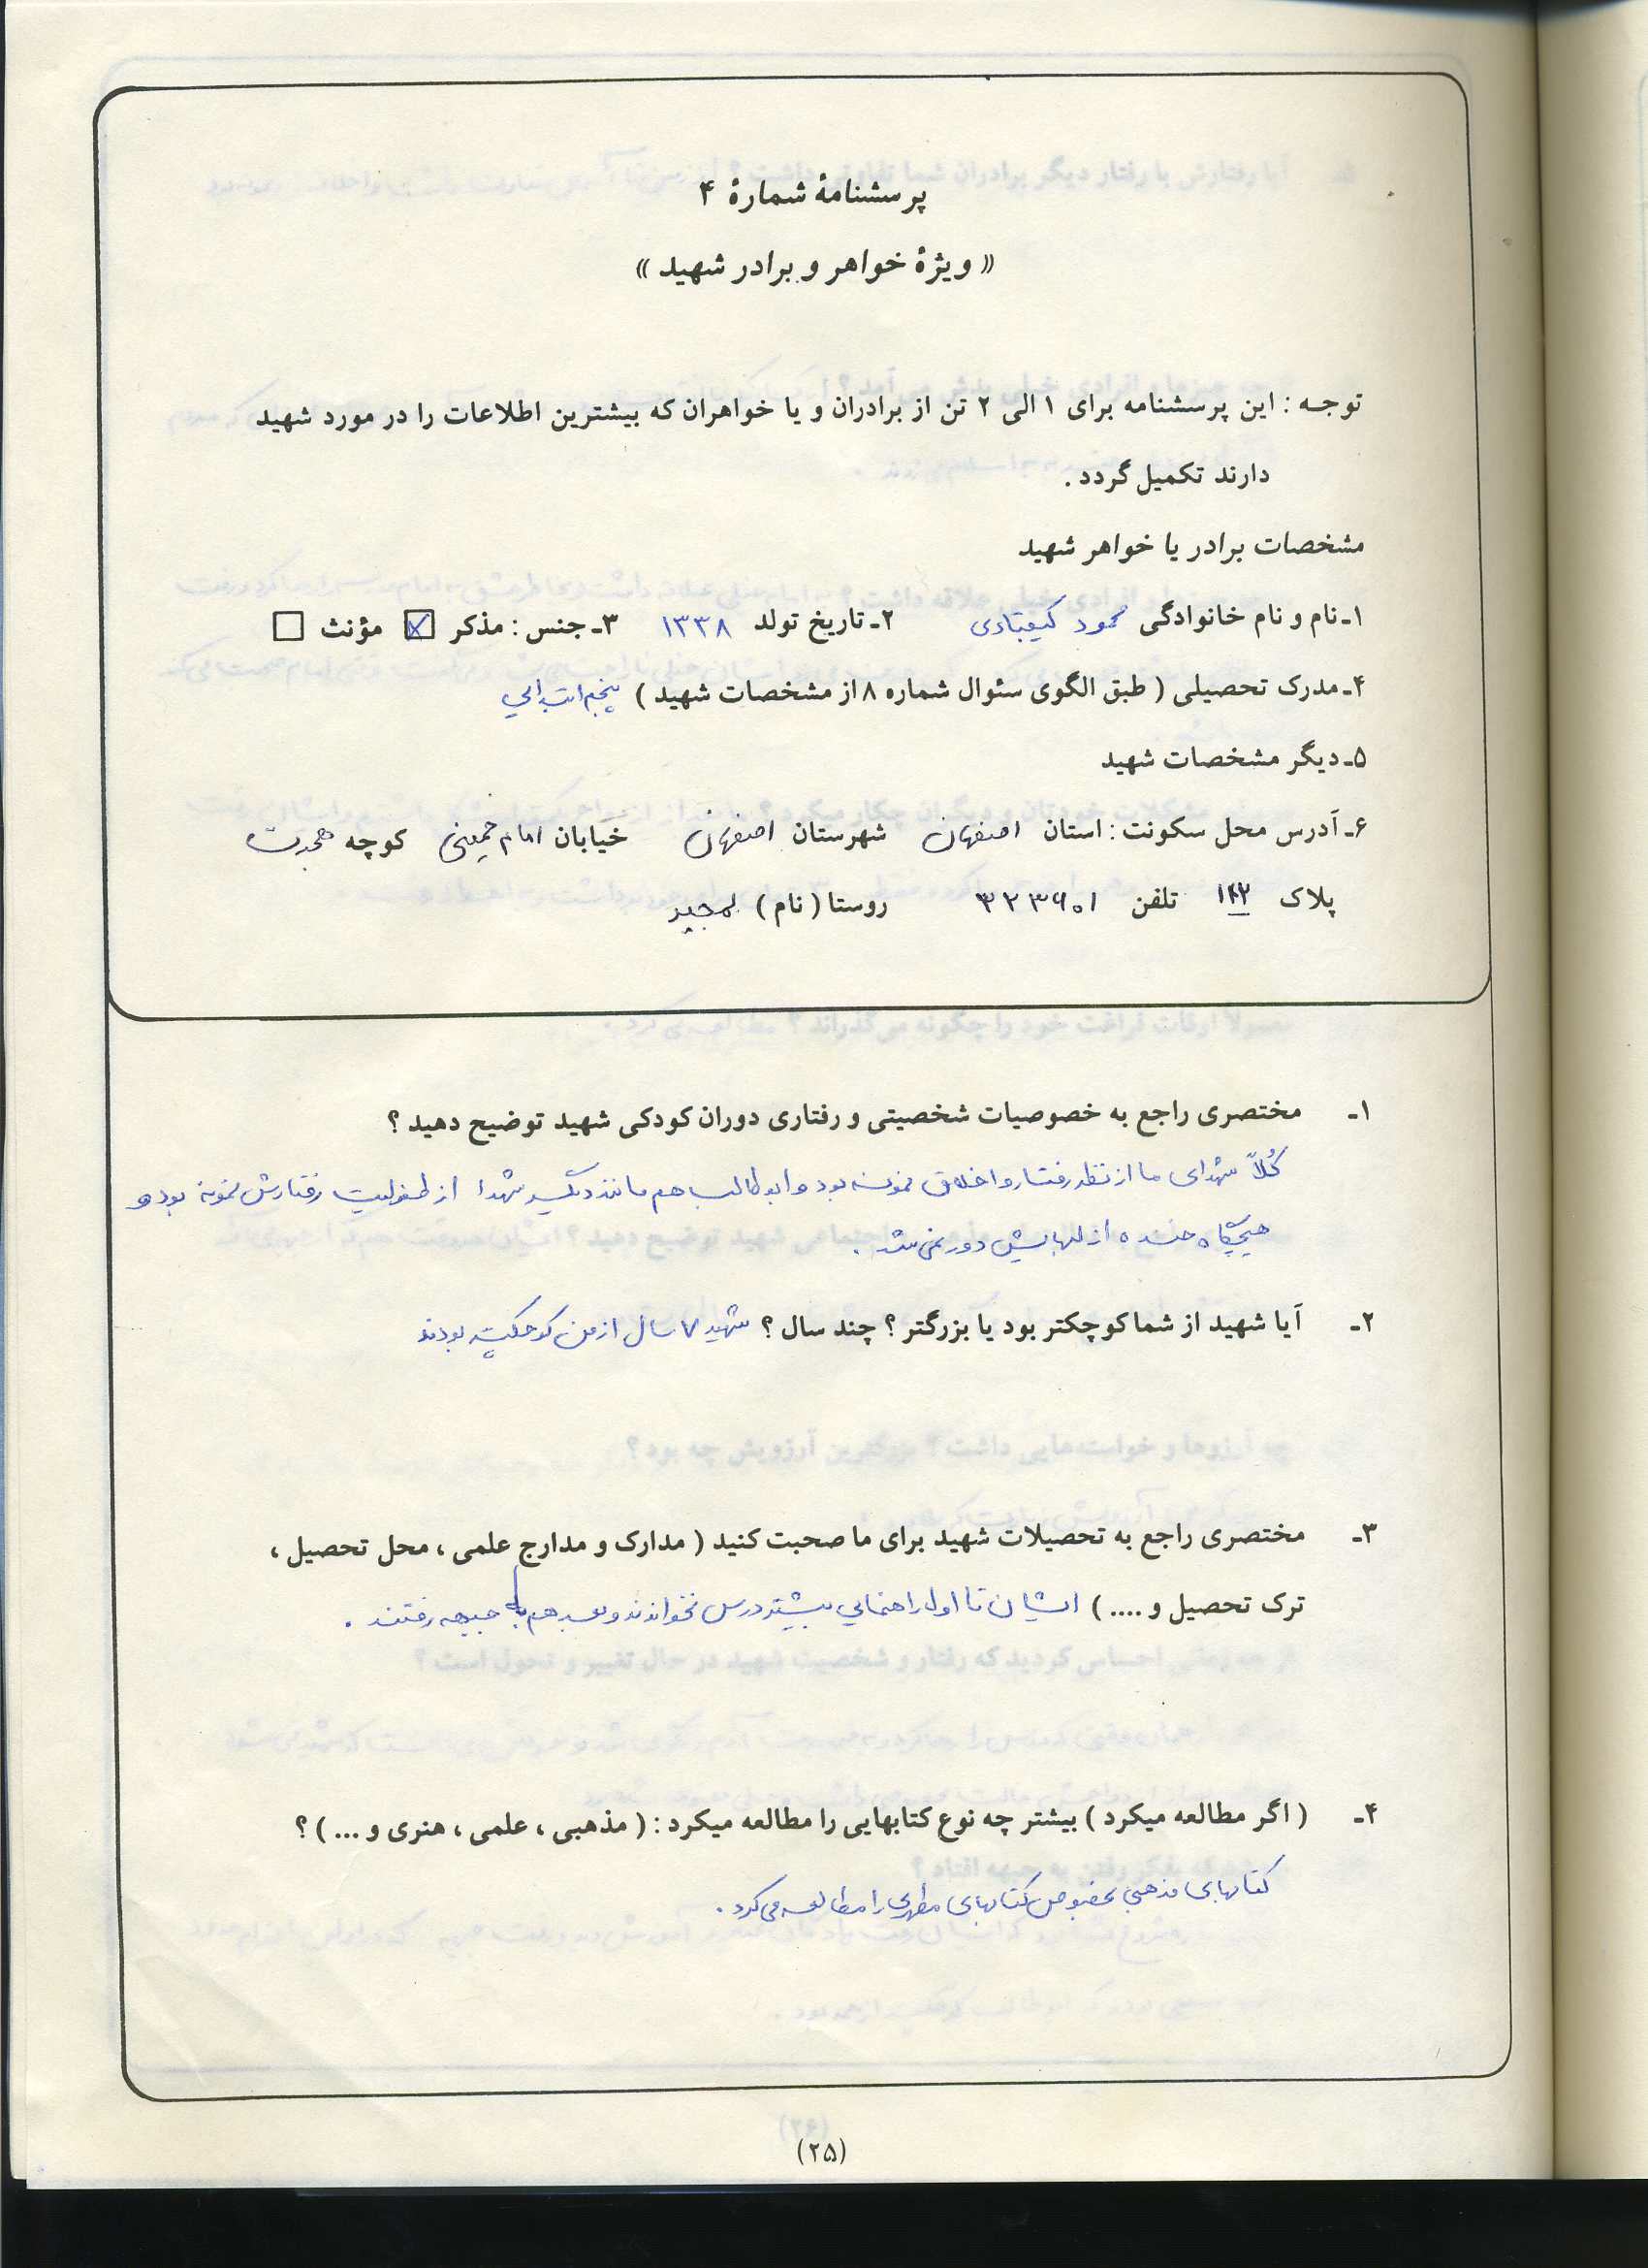 پرسشنامهٔ شمارهٔ ۴
« ویژهٔ خواهر و برادر شهید »
توجه : این پرسشنامه برای ۱ الی ۲ تن از برادران و یا خواهران که بیشترین اطلاعات را در مورد شهید
دارند تکمیل گردد .
مشخصات برادر یا خواهر شهید
۱ـ نام و نام خانوادگی محمود کیقبادی ۲ـ تاریخ تولد ۱۳۳۸ ۳ـ جنس : مذکر ☒ مؤنث ☐
۴ـ مدرک تحصیلی ( طبق الگوی سئوال شماره ۸ از مشخصات شهید ) پنجم ابتدایی
۵ـ دیگر مشخصات شهید
۶ـ آدرس محل سکونت : استان اصفهان شهرستان اصفهان خیابان امام خمینی کوچه هجرت
پلاک ۱۴۲ تلفن ۳۲۳۹۰۱ روستا ( نام )
۱ـ مختصری راجع به خصوصیات شخصیتی و رفتاری دوران کودکی شهید توضیح دهید ؟
کُلاً شهدای ما از نظر رفتار و اخلاق نمونه بود و ابوطالب هم مانند دیگر شهدا از طفولیت رفتارش نمونه بود و
هیچگاه خنده از لبهایش دور نمی شد .
۲ـ آیا شهید از شما کوچکتر بود یا بزرگتر ؟ چند سال ؟ شهید ۷ سال از من کوچکتر بودند
۳ـ مختصری راجع به تحصیلات شهید برای ما صحبت کنید ( مدارک و مدارج علمی ، محل تحصیل ،
ترک تحصیل و .... ) ایشان تا اول راهنمایی بیشتر درس نخواندند و بعد هم به جبهه رفتند .
۴ـ ( اگر مطالعه میکرد ) بیشتر چه نوع کتابهایی را مطالعه میکرد : ( مذهبی ، علمی ، هنری و ... ) ؟
کتابهای مذهبی بخصوص کتابهای مطهری را مطالعه می کرد .
(۲۵)